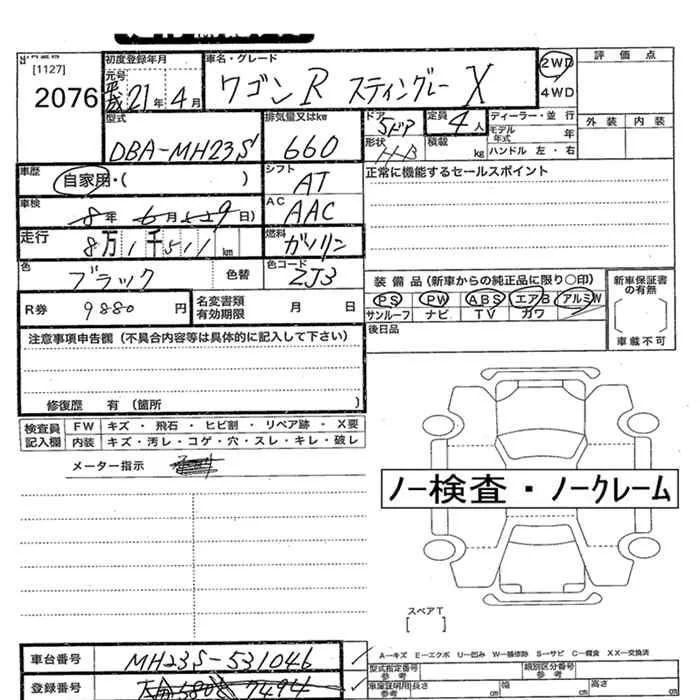 [1127]
2076
初度登録年月
元号
平成 21年 4月
車名・グレード
ワゴンR スティングレー X
2WD
4WD
評価点
外装 内装
型式
DBA-MH23S
排気量又はkw
660
ドア
5ドア
形状
定員
4人
積載
kg
ディーラー・並行
モデル年式 年
ハンドル 左・右
車歴
自家用・( )
シフト
AT
正常に機能するセールスポイント
車検
8年 6月 9日)
AC
AAC
走行
8万1千511km
燃料
ガソリン
色
ブラック
色替
色コード
ZJ3
R券 9880円
名変書類有効期限 月 日
装備品(新車からの純正品に限り○印)
PS PW ABS エアB アルミW
サンルーフ ナビ TV カワ
後日品
新車保証書の有無
車載不可
注意事項申告欄(不具合内容等は具体的に記入して下さい)
修復歴 有(箇所 )
検査員記入欄
FW キズ・飛石・ヒビ割・リペア跡・X要
内装 キズ・汚レ・コゲ・穴・スレ・キレ・破レ
メーター指示
ノー検査・ノークレーム
スペアT
[ ]
車台番号 MH23S-531046
A-キズ E-エクボ U-凹み W-補修跡 S-サビ C-腐食 XX-交換済
型式指定番号
参考
類別区分番号
参考
登録番号
車庫証明用参考
長さ
幅
高さ